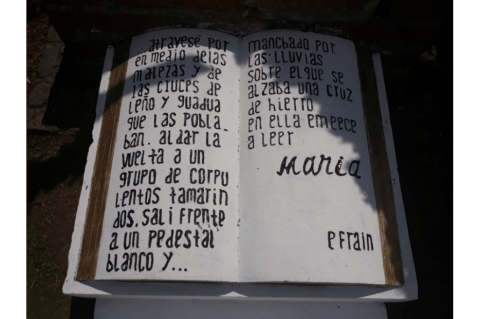 atravesé por
en medio de las
malezas y de
las cruces de
leño y guadua
que las pobla-
ban. al dar la
vuelta a un
grupo de corpu
lentos tamarin
dos, sali frente
a un pedestal
blanco y...
manchado por
las lluvias
sobre el que se
alzaba una cruz
de hierro
en ella emeece
a leer
María
efrain